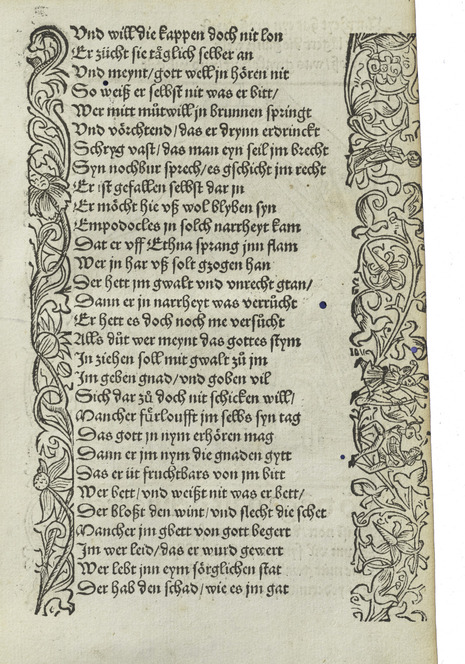 Vnd will die kappen doch nit lon
Er zücht sie täglich selber an
Vnd meynt/gott well jn hören nit
So weiß er selbst nit was er bitt/
Wer mitt můtwill jn brunnen springt
Vnd vörchtend/das er drynn erdrinckt
Schryg vast/das man eyn seil jm brecht
Syn nochbur sprech/es gschicht jm recht
Er ist gefallen selbst dar jn
Er möcht hie vß wol blyben syn
Empodocles in solch narrheyt kam
Dat er vff Ethna sprang jnn flam
Wer jn har vß solt gzogen han
Der hett jm gwalt vnd vnrecht gtan/
Dann er jn narrheyt was verrůcht
Er hett es doch noch me versůcht
Alls důt wer meynt das gottes stym
In ziehen soll mit gwalt zů jm
Im geben gnad/vnd goben vil
Sich dar zů doch nit schicken will/
Mancher fürloufft jm selbs syn tag
Das gott jn nym erhören mag
Dann er jm nym die gnaden gytt
Das er üt fruchtbars von jm bitt
Wer bett/vnd weißt nit was er bett/
Der bloßt den wint/vnd slecht die schet
Mancher jm gbett von gott begert
Im wer leid/das er wurd gewert
Wer lebt jnn eym sörglichen stat
Der hab den schad/wie es jm gat